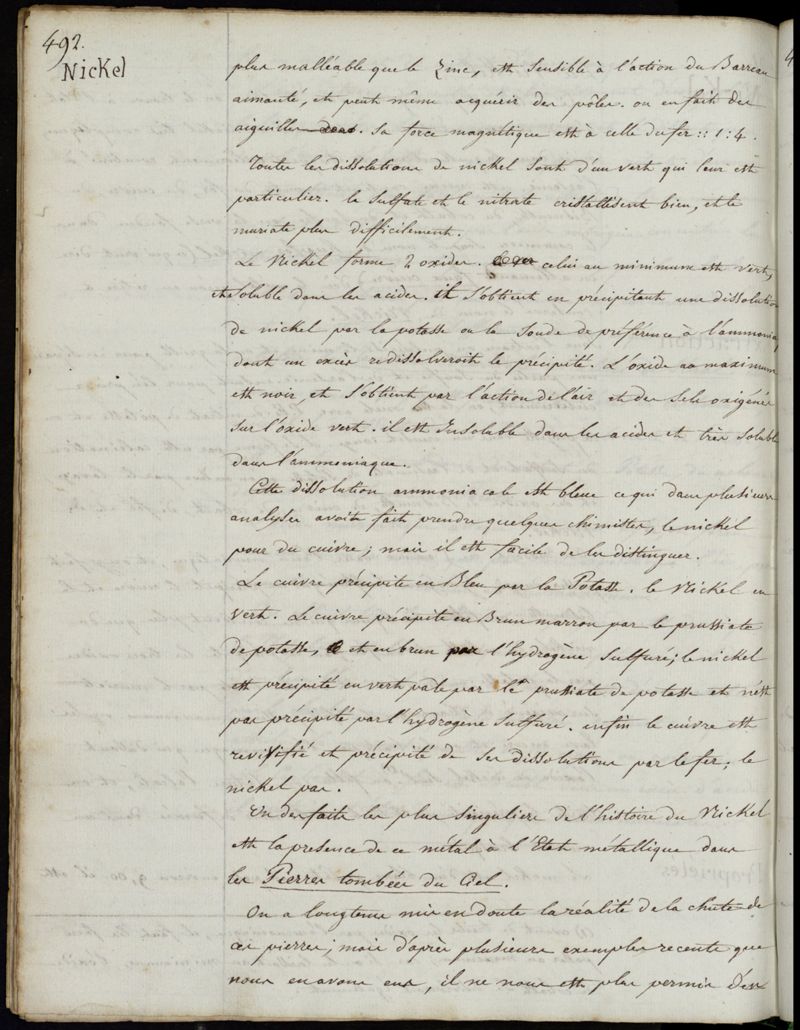 492.
Nickel
plus malléable que le Zinc, est sensible à l'action du Barreau
aimanté, et peut même acquérir des pôles. on en fait des
aiguilles. Sa force magnétique est à celle du fer :: 1 : 4.
Toutes les dissolutions de nickel sont d'un vert qui leur est
particulier. le sulfate et le nitrate cristallisent bien, et le
muriate plus difficilement.
Le Nickel forme 2 oxides. celui au minimum est vert,
et soluble dans les acides. il s'obtient en précipitant une dissolution
de nickel par la potasse ou la soude de préférence à l'ammoniaq
dont un excès redissolveroit le précipité. L'oxide au maximum
est noir, et s'obtient par l'action de l'air et des sels oxigénés
sur l'oxide vert. il est insoluble dans les acides et très soluble
dans l'ammoniaque.
Cette dissolution ammoniacale est bleue ce qui dans plusieurs
analyses avoit fait prendre quelques chimistes, le nickel
pour du cuivre ; mais il est facile de les distinguer.
Le cuivre précipite en Bleu par la Potasse. le Nickel en
vert. Le cuivre précipite en Brun marron par le prussiate
de potasse, et en brun par l'hydrogène sulfuré ; le nickel
est précipité en vert pale par le prussiate de potasse et n'est
pas précipité par l'hydrogène sulfuré. enfin le cuivre est
revivifié et précipité de ses dissolutions par le fer ; le
nickel pas.
Un des faits les plus singuliers de l'histoire du Nickel
est la presence de ce métal à l'Etat métallique dans
les Pierres tombées du Ciel.
On a longtems mis en doute la réalité de la chute de
ces pierres ; mais d'après plusieurs exemples recents que
nous en avons eus, il ne nous est plus permis d'en